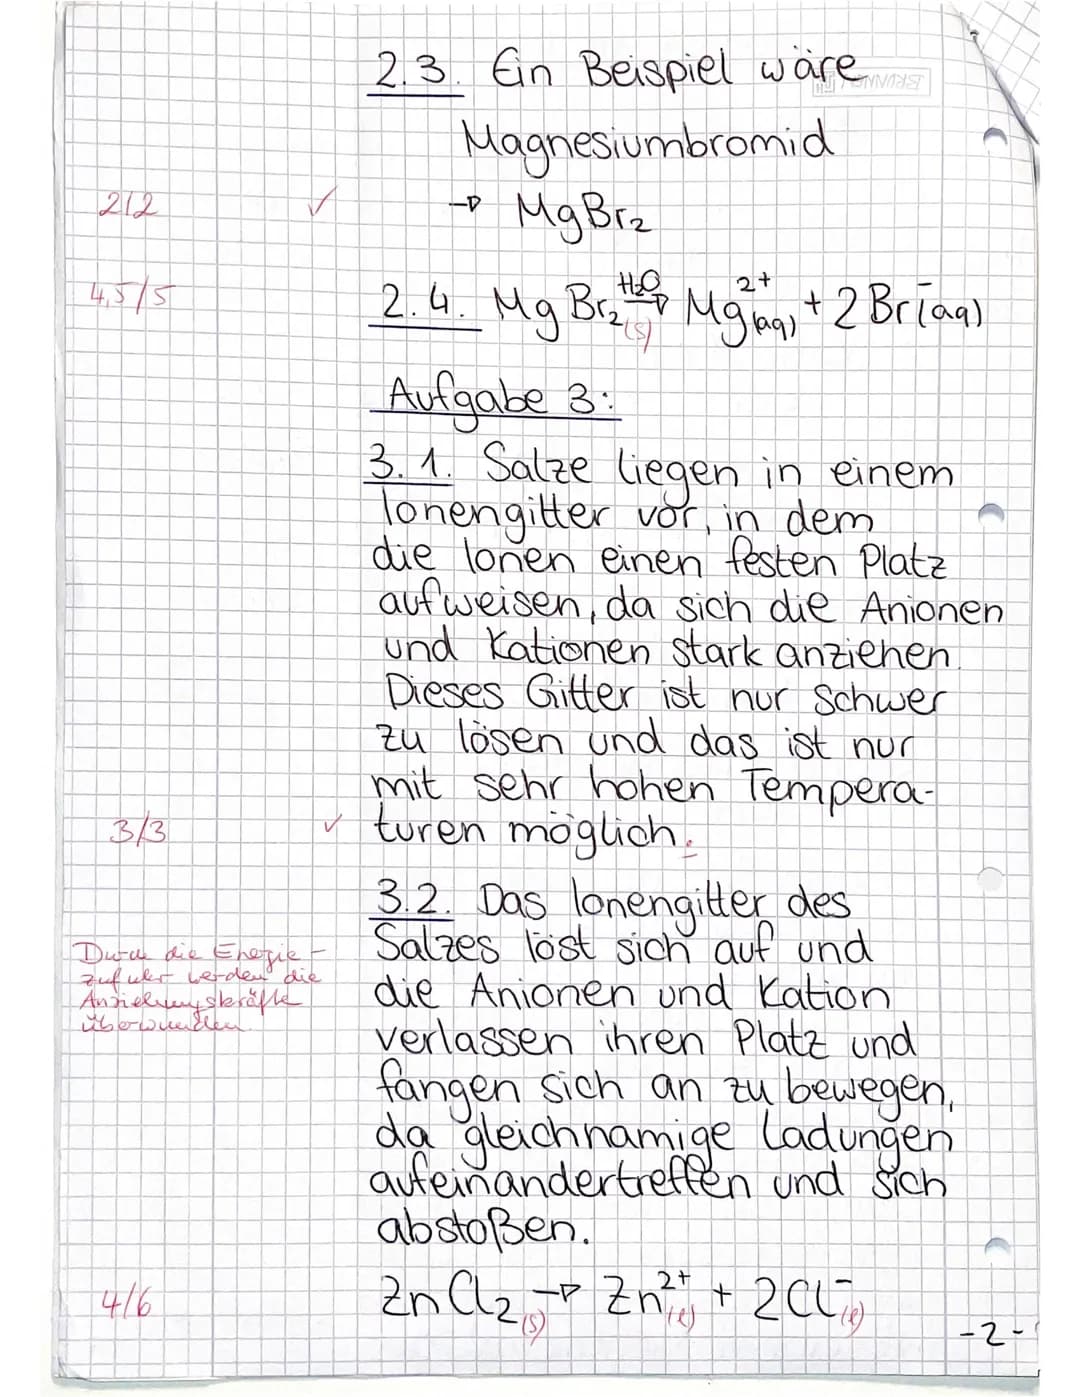 2.3. Ein Beispiel wäre
BRUNNEN
Magnesiumbromid
2/2 ✓ → MgBr₂
4,5/5 2.4. MgBr₂(s) H₂O→ Mg²⁺(aq) + 2Br⁻(aq)
Aufgabe 3:
3.1. Salze liegen in einem
Ionengitter vor, in dem
die Ionen einen festen Platz
aufweisen, da sich die Anionen
und Kationen stark anziehen.
Dieses Gitter ist nur schwer
zu lösen und das ist nur
mit sehr hohen Tempera-
3/3 ✓ turen möglich.
3.2. Das Ionengitter des
Salzes löst sich auf und
die Anionen und Kation
verlassen ihren Platz und
fangen sich an zu bewegen,
da gleichnamige Ladungen
aufeinandertreffen und sich
abstoßen.
Durch die Energie-
zufuhr werden die
Anziehungskräfte
überwunden.
4/6 ZnCl₂(s) → Zn²⁺(l) + 2Cl⁻(l)
-2-